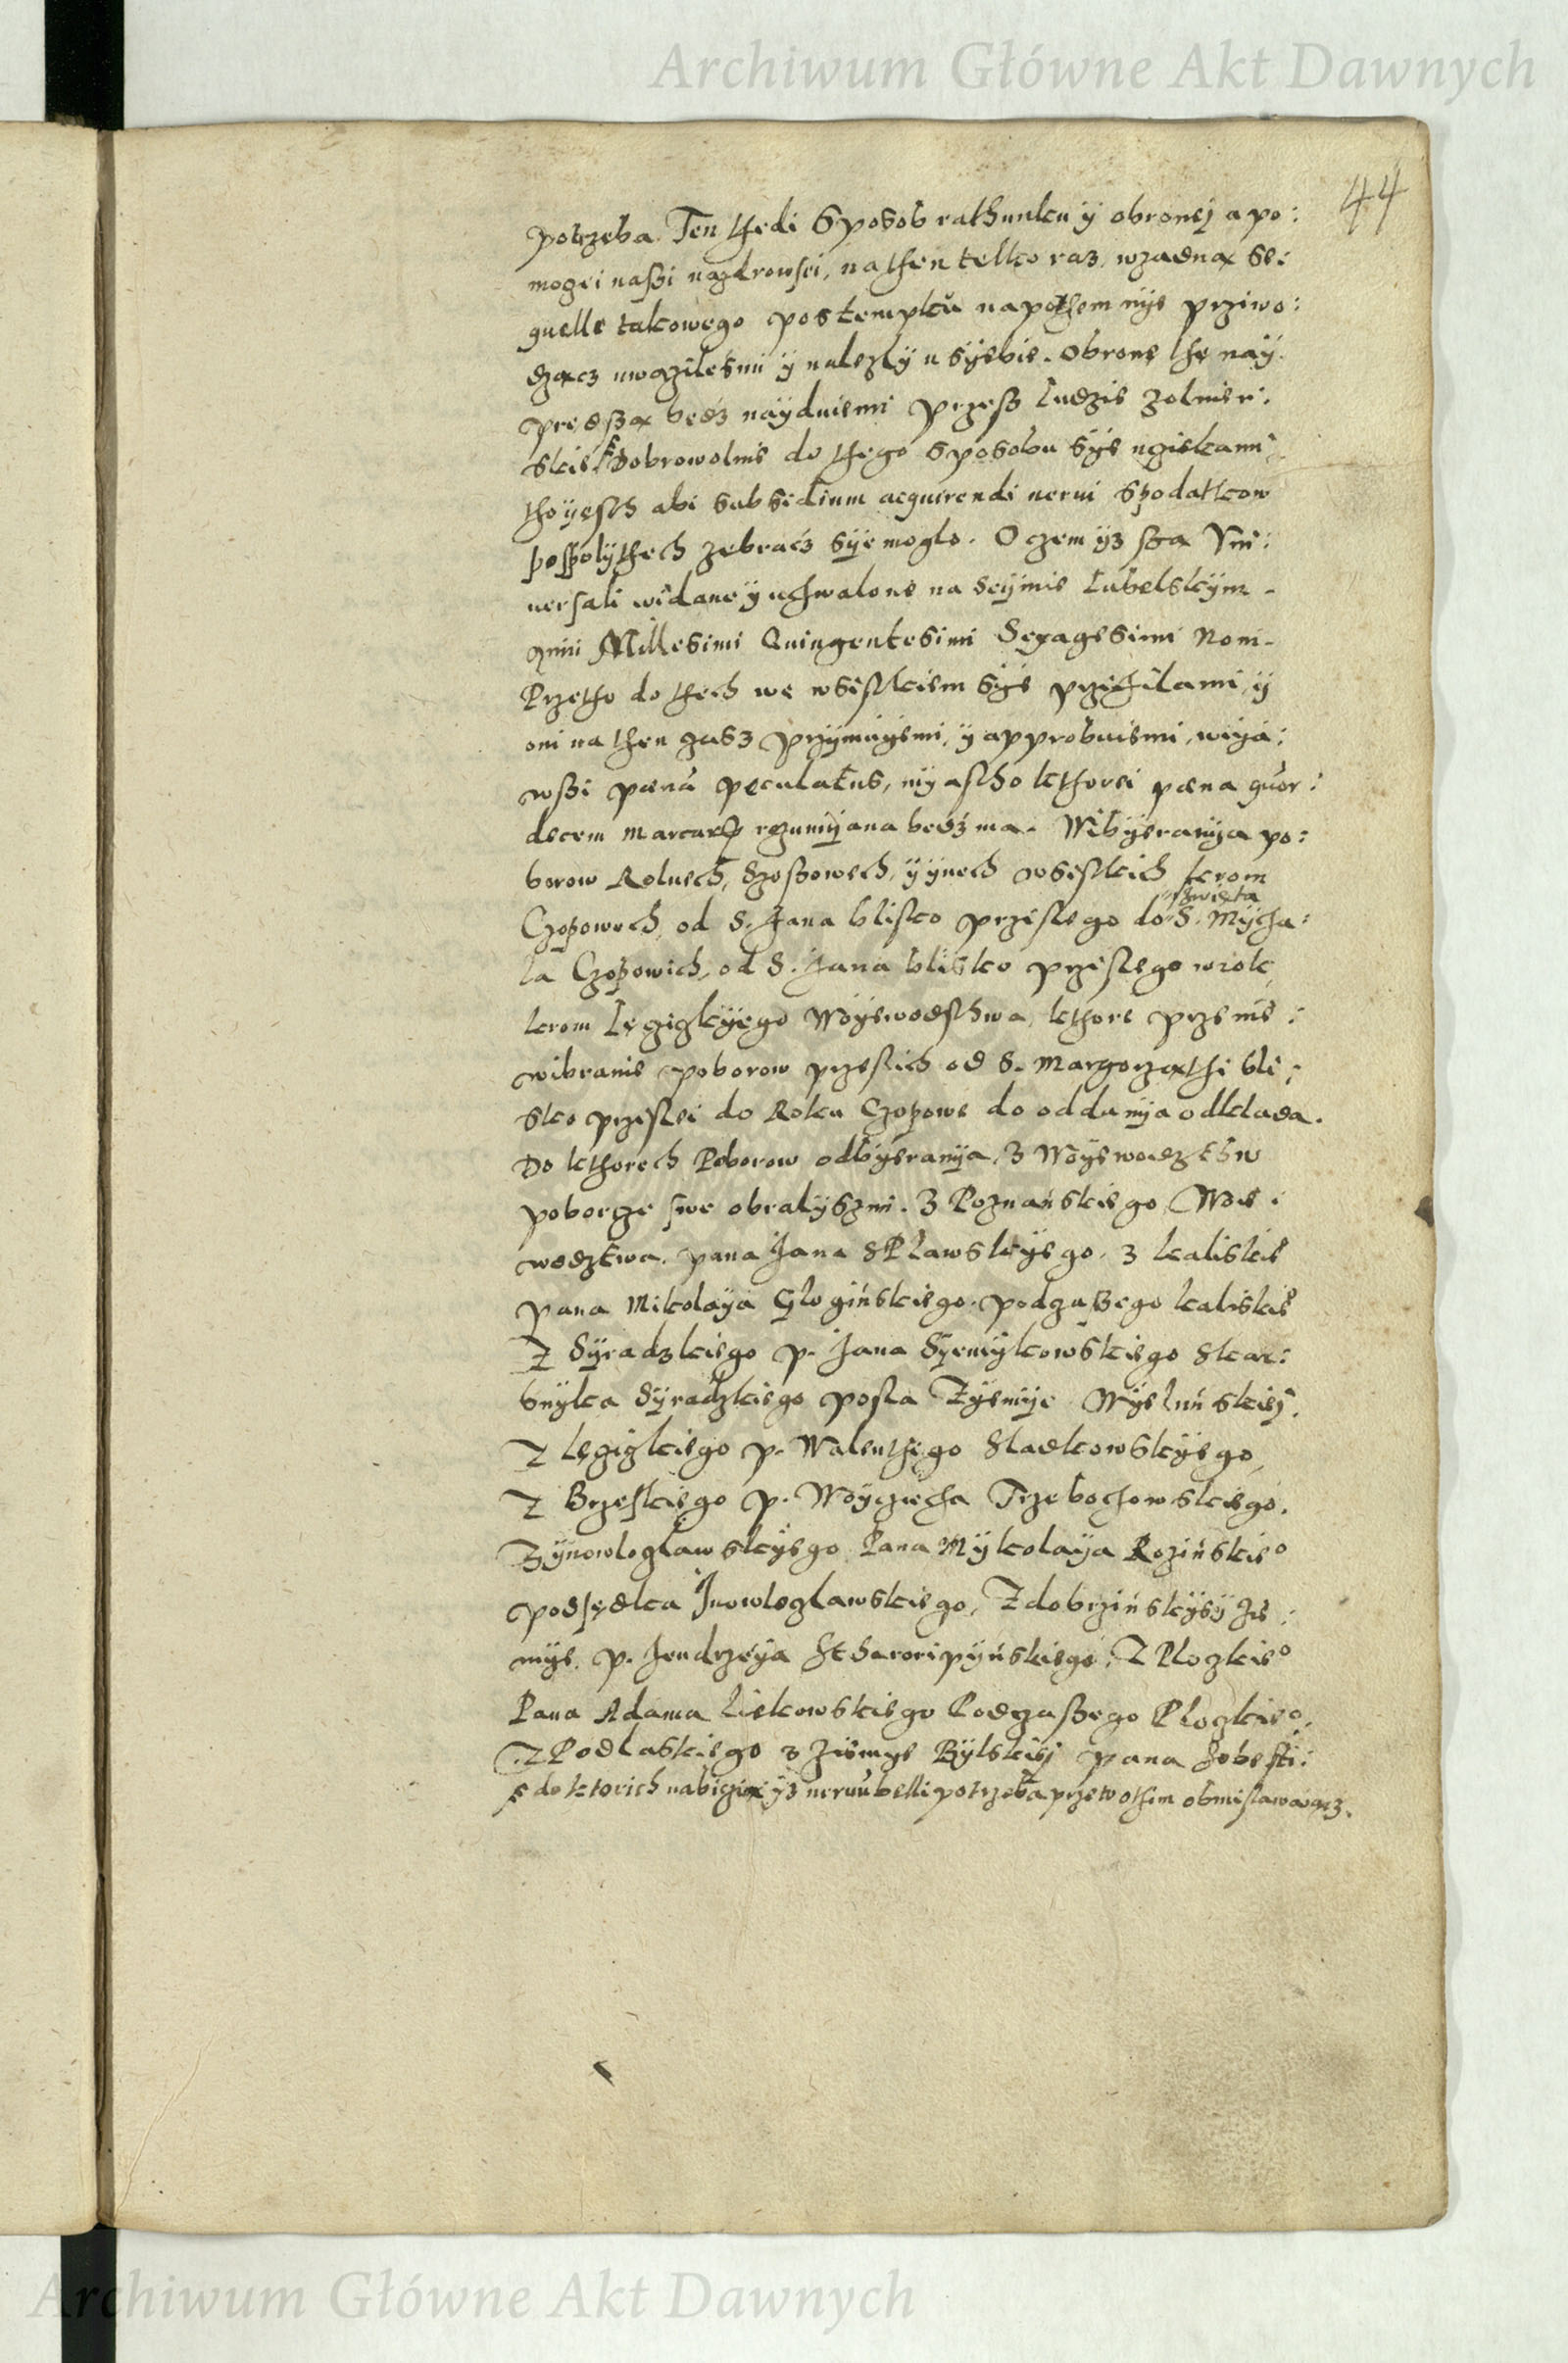 Archiwum Główne Akt Dawnych
44
potrzeba. Ten thedi sposob rathunku y obronej a po:
mogei naszei nazdrowsei, na then telko raz, wzadnax se:
quelle takowego postempku napothem nye prziwo:
dzacz uwazilesmi y nalezly u syebie. Obrone the nay:
predsza bedz nayduiemi przesz ludzie zolnier:
skie dobrowolnie do thego sposobu sye uciekami
tho yesth abi subsidium acquirendi nerui s podatkow
pospolythech zebracz sye moglo. O czem yz sza Vni:
uersali widane y uchwalone na seymie Lubelskym
Anni Millesimi Quingentesimi Sexagesimi Noni.
Przetho do thech we wsistkiem sye przichilami, y
oni na then czasz przymuyemi, y approbuiemi, wiya:
wszi pæna peculatus, myastho kthorei pæna quor:
decem marcarum rozumyana bedz ma. Wibyeranya po:
borow Rolnech, Szoszowech, y ynech wsistkich krom
szwieta
Czopowech, od S. Jana blisko przeslego do S. Mycha:
la Czopowich, od S. Jana blisko przeslego w rok,
krom Leczyczkyego Woyewodsthwa, kthore przenie:
wibranie poborow przeslich od S. Margorzathi bli:
sko przeslei do Roku Czopowe do oddanya odklada.
Do kthorech Poborow odbyeranya, z Woyewodztw
poborcze swe obralyszmi. Z Poznańskiego Woie:
wodztwa. pana Jana SPlawskyego. z kaliskie
pana Mikolaya Glogińskiego podczaszego kaliskie
Z Syradzkiego p. Jana Syemykowskiego skar:
bnyka Syradzkiego posla Zyemye Wyeluńskiej
Z Leczyczkiego p. Walenthego Sladkowskyego,
Z Brzeskiego p. Woycziecha Trzebochowskiego.
Z ynowloczlawskyego Pana Mykolaya Rozińskieo
podsedka Jnowloczlawskiego, Z dobrzińskyey Zie:
mye. p. Jendrzeya Stharoripyńskiego, Z Ploczkieo
Pana Adama Liskowskiego Podczaszego Ploczkieo.
Z Podlaskiego z Ziemye Byelskiej pana Sebesti:
do ktorich nabiciem yz neruu belli potrzeba przeto othem obmislawaiacz.
Archiwum Główne Akt Dawnych